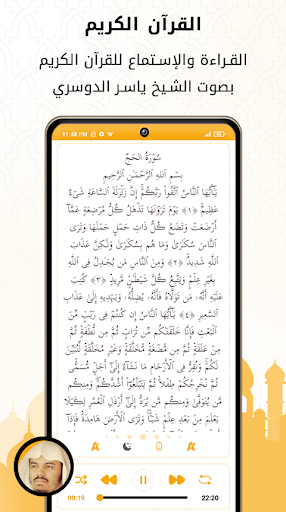 القرآن الكريم
القراءة والإستماع للقرآن الكريم
بصوت الشيخ ياسر الدوسري
11:48 PM
سُورَةُ الحَجِّ
بِسْمِ اللَّهِ الرَّحْمَٰنِ الرَّحِيمِ
يَا أَيُّهَا النَّاسُ اتَّقُوا رَبَّكُمْ إِنَّ زَلْزَلَةَ السَّاعَةِ شَيْءٌ
عَظِيمٌ ﴿١﴾ يَوْمَ تَرَوْنَهَا تَذْهَلُ كُلُّ مُرْضِعَةٍ عَمَّا
أَرْضَعَتْ وَتَضَعُ كُلُّ ذَاتِ حَمْلٍ حَمْلَهَا وَتَرَى
النَّاسَ سُكَارَىٰ وَمَا هُم بِسُكَارَىٰ وَلَٰكِنَّ عَذَابَ
اللَّهِ شَدِيدٌ ﴿٢﴾ وَمِنَ النَّاسِ مَن يُجَادِلُ فِي اللَّهِ
بِغَيْرِ عِلْمٍ وَيَتَّبِعُ كُلَّ شَيْطَانٍ مَّرِيدٍ ﴿٣﴾ كُتِبَ
عَلَيْهِ أَنَّهُ مَن تَوَلَّاهُ فَأَنَّهُ يُضِلُّهُ وَيَهْدِيهِ إِلَىٰ عَذَابِ
السَّعِيرِ ﴿٤﴾ يَا أَيُّهَا النَّاسُ إِن كُنتُمْ فِي رَيْبٍ مِّنَ
الْبَعْثِ فَإِنَّا خَلَقْنَاكُم مِّن تُرَابٍ ثُمَّ مِن نُّطْفَةٍ ثُمَّ
مِنْ عَلَقَةٍ ثُمَّ مِن مُّضْغَةٍ مُّخَلَّقَةٍ وَغَيْرِ مُخَلَّقَةٍ لِّنُبَيِّنَ
لَكُمْ وَنُقِرُّ فِي الْأَرْحَامِ مَا نَشَاءُ إِلَىٰ أَجَلٍ مُّسَمًّى
ثُمَّ نُخْرِجُكُمْ طِفْلًا ثُمَّ لِتَبْلُغُوا أَشُدَّكُمْ وَمِنكُم
مَّن يُتَوَفَّىٰ وَمِنكُم مَّن يُرَدُّ إِلَىٰ أَرْذَلِ الْعُمُرِ لِكَيْلَا
يَعْلَمَ مِن بَعْدِ عِلْمٍ شَيْئًا وَتَرَى الْأَرْضَ هَامِدَةً فَإِذَا
00:19
22:20